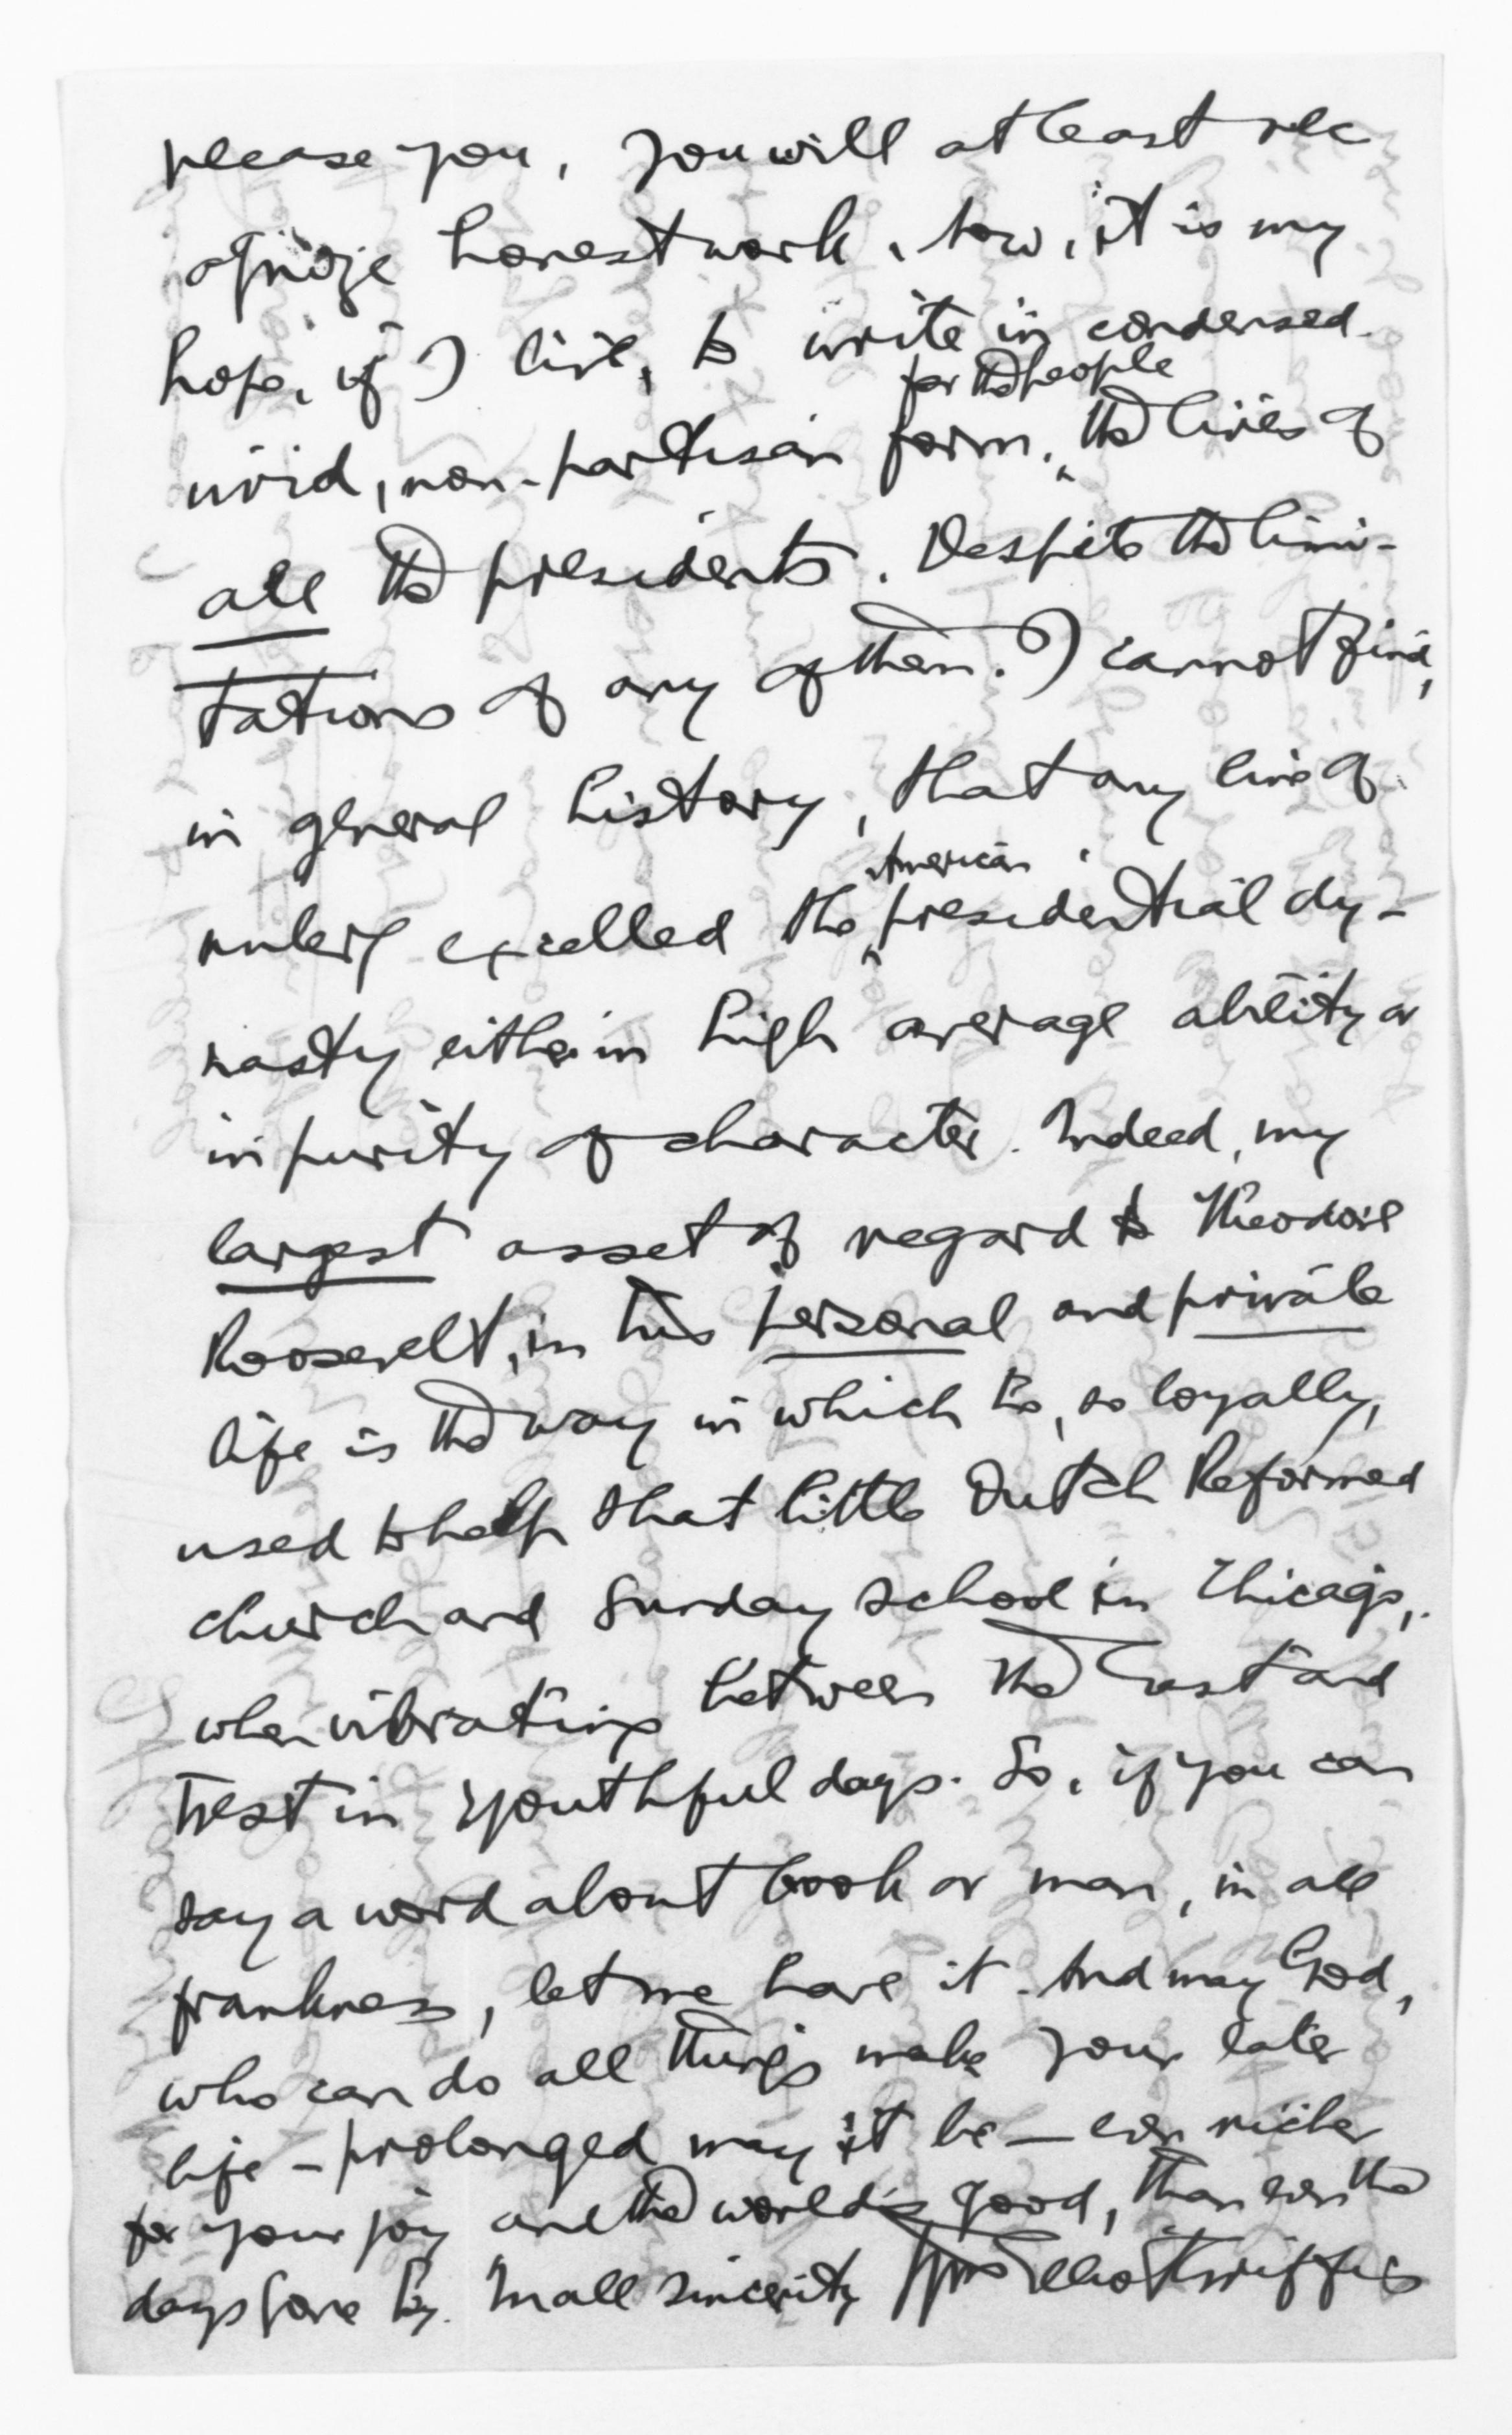 please you, you will at least rec
ognize honest work. Now, it is my
hope, if I live, to write in condensed
for the people
vivid, non-partisan form, the lives of
all the presidents. Despite the limi-
tations of any of them. I cannot find,
in general history, that any line of
American
rulers excelled the presidential dy-
nasty either in high average ability or
in purity of character. Indeed, my
largest asset of regard to Theodore
Roosevelt, in his personal and private
life is the way in which he, so loyally,
used to help that little Dutch Reformed
church and Sunday School in Chicago,
when vibrating between the East and
West in youthful days. So, if you can
say a word about book or man, in all
frankness, let me have it. And may God,
who can do all things make your later
life – prolonged may it be – even richer
for your joy and the world's good, than even the
days gone by. In all sincerity Wm Elliot Griffis